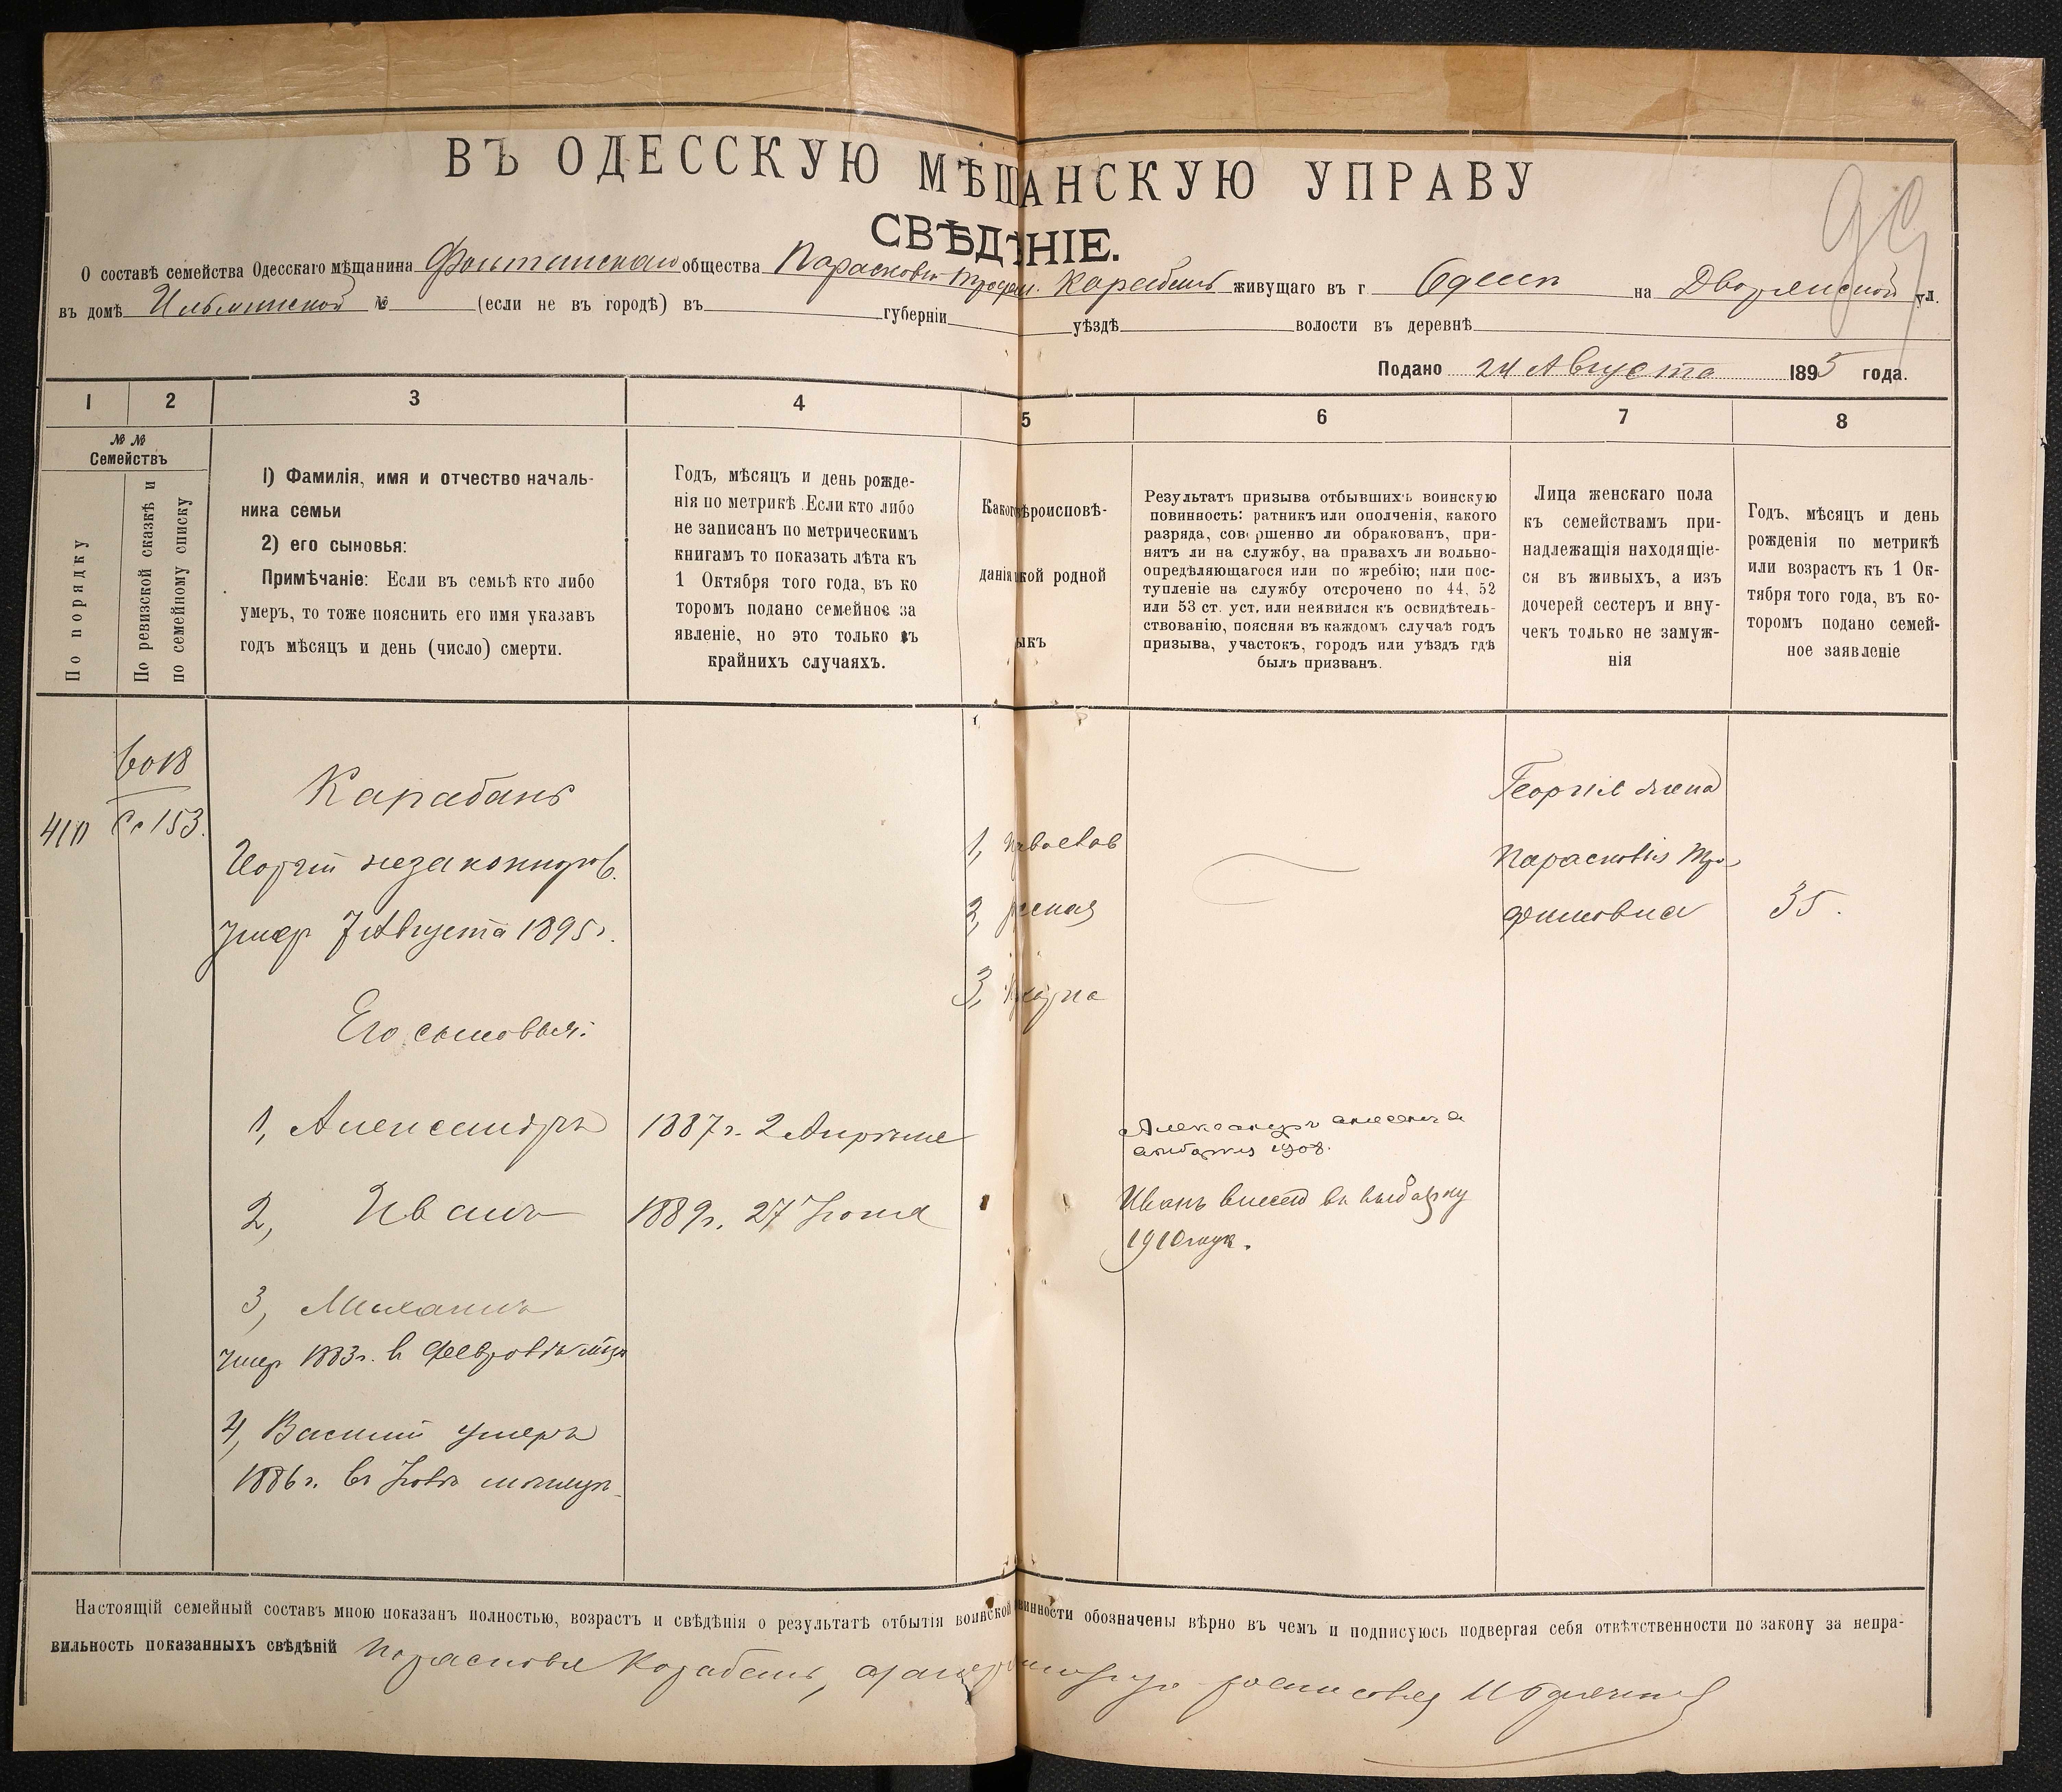 ВЪ ОДЕССКУЮ МѢЩАНСКУЮ УПРАВУ
СВѢДѢНІЕ.
О составѣ семейства Одесскаго мѣщанина Фонтанскаго общества Парасковьи Троф. Карабанъ живущаго въ г. Одессѣ на Дворянской ул.
въ домѣ № (если не въ городѣ) въ губерніи уѣздѣ волости въ деревнѣ
Подано 24 Августа 1895 года.
1 2 3 4 5 6 7 8
№№ Семействъ
По порядку
По ревизской сказкѣ и по семейному списку
1) Фамилія, имя и отчество началь-
ника семьи
2) его сыновья:
Примѣчаніе: Если въ семьѣ кто либо
умеръ, то тоже пояснить его имя указавъ
годъ мѣсяцъ и день (число) смерти.
Годъ, мѣсяцъ и день рожде-
нія по метрикѣ. Если кто либо
не записанъ по метрическимъ
книгамъ то показать лѣта къ
1 Октября того года, въ ко
торомъ подано семейное за
явленіе, но это только въ
крайнихъ случаяхъ.
Какого вѣроисповѣ-
данія какой родной
ыкъ
Результатъ призыва отбывшихъ воинскую
повинность: ратникъ или ополченія, какого
разряда, совершенно ли обракованъ, при-
нятъ ли на службу, на правахъ ли вольно-
опредѣляющагося или по жребію; или пос-
тупленіе на службу отсрочено по 44, 52
или 53 ст. уст. или неявился къ освидѣтель-
ствованію, поясняя въ каждомъ случаѣ годъ
призыва, участокъ, городъ или уѣздъ гдѣ
былъ призванъ.
Лица женскаго пола
къ семействамъ при-
надлежащія находящіе-
ся въ живыхъ, а изъ
дочерей сестеръ и вну-
чекъ только не замуж-
нія
Годъ, мѣсяцъ и день
рожденія по метрикѣ
или возрастъ къ 1 Ок-
тября того года, въ ко-
торомъ подано семей-
ное заявленіе
6018
Сс 153.
Карабанъ
незаконнор.
умер 7 Августа 1895 г.
Его сыновья:
1, Александръ 1887 г. 2 Апрѣля
2, Иванъ 1889 г. 27 Іюня
3, Михаилъ
умер 1883 г. в Февралѣ мѣц
4, Василій умеръ
1886 г. въ мѣсяцѣ
1, православ
2, русская
3,
Александръ внесенъ в
выборку 1908.
Иванъ внесенъ въ выборку
1910 году.
Георгія жена
Парасковья Тро
фимовна 35.
Настоящій семейный составъ мною показанъ полностью, возрастъ и свѣдѣнія о результатѣ отбытія воинской повинности обозначены вѣрно въ чемъ и подписуюсь подвергая себя отвѣтственности по закону за непра-
вильность показанныхъ свѣдѣній Парасковья Карабанъ, а